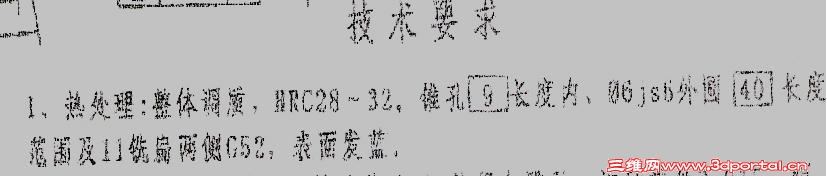 技术要求
1、热处理:整体调质，HRC28～32，锥孔[9]长度内、Ø6js6外圆[40]长度
范围及11铣扁两侧G52，表面发蓝，
三维网www.3dportal.cn